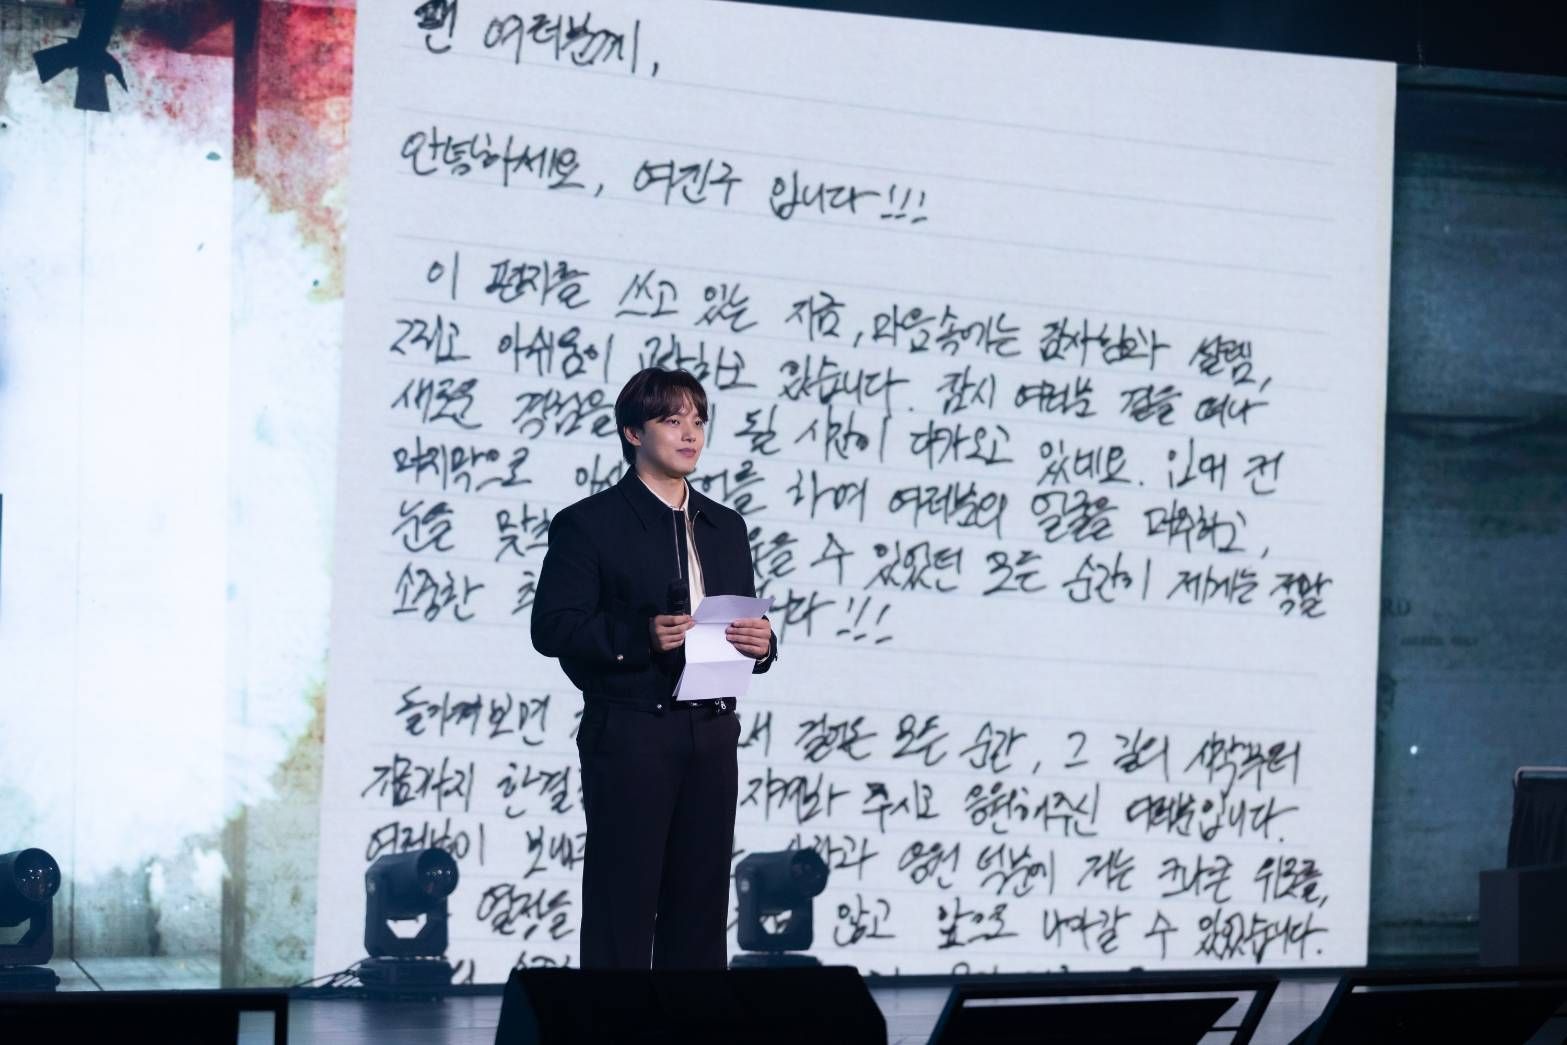 팬 여러분께,
안녕하세요, 여진구 입니다!!!
이 편지를 쓰고 있는 지금, 마음속에는 감사함과 설렘,
그리고 아쉬움이 공존하고 있습니다. 잠시 여러분 곁을 떠나
새로운 경험을 될 시간이 다가오고 있네요. 입대 전
마지막으로 아시아 투어를 하며 여러분의 얼굴을 마주하고,
눈을 맞추 있을 수 있었던 모든 순간이 제게는 정말
소중한 니다!!!
돌이켜보면 서 걸어온 모든 순간, 그 길의 시작부터
지금까지 한결 지켜봐 주시고 응원해주신 여러분입니다.
여러분이 보내주 사랑과 응원 덕분에 저는 크나큰 위로를,
열정을 않고 앞으로 나아갈 수 있었습니다.